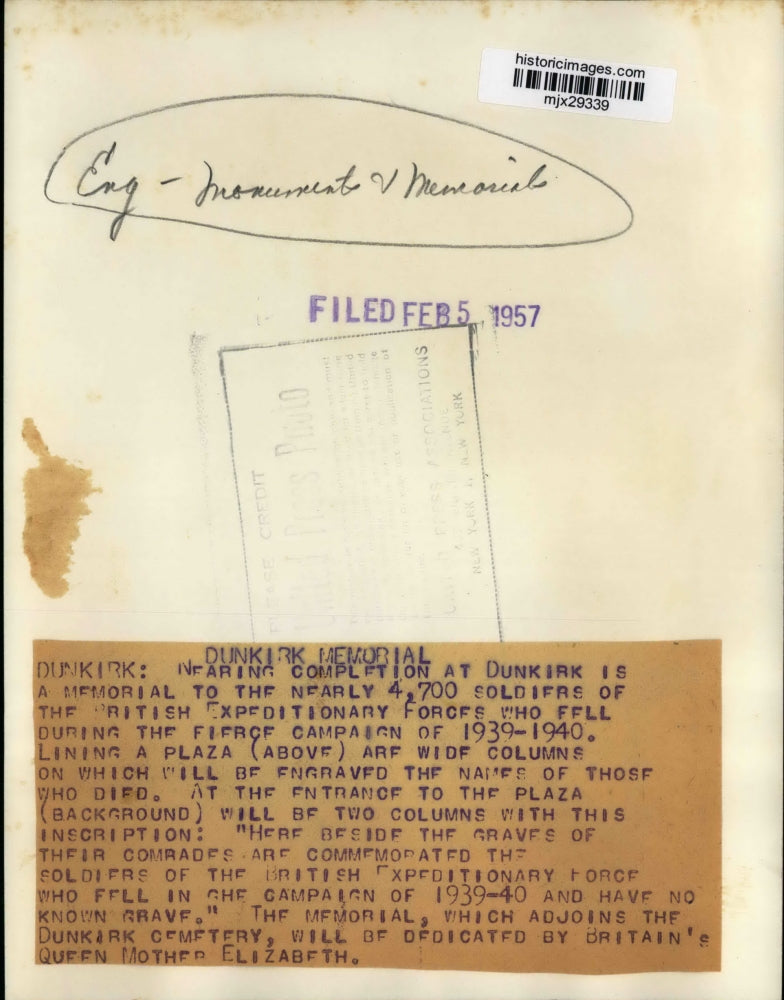 historicimages.com
mjx29339
Eng - Monuments & Memorials
FILED FEB 5 1957
PLEASE CREDIT
United Press Photo
PRESS ASSOCIATIONS
NEW YORK 17, NEW YORK
DUNKIRK MEMORIAL
DUNKIRK: NEARING COMPLETION AT DUNKIRK IS
A MEMORIAL TO THE NEARLY 4,700 SOLDIERS OF
THE BRITISH EXPEDITIONARY FORCES WHO FELL
DURING THE FIERCE CAMPAIGN OF 1939-1940.
LINING A PLAZA (ABOVE) ARE WIDE COLUMNS
ON WHICH WILL BE ENGRAVED THE NAMES OF THOSE
WHO DIED. AT THE ENTRANCE TO THE PLAZA
(BACKGROUND) WILL BE TWO COLUMNS WITH THIS
INSCRIPTION: "HERE BESIDE THE GRAVES OF
THEIR COMRADES ARE COMMEMORATED THE
SOLDIERS OF THE BRITISH EXPEDITIONARY FORCE
WHO FELL IN GHE CAMPAIGN OF 1939-40 AND HAVE NO
KNOWN GRAVE." THE MEMORIAL, WHICH ADJOINS THE
DUNKIRK CEMETERY, WILL BE DEDICATED BY BRITAIN'S
QUEEN MOTHER ELIZABETH.